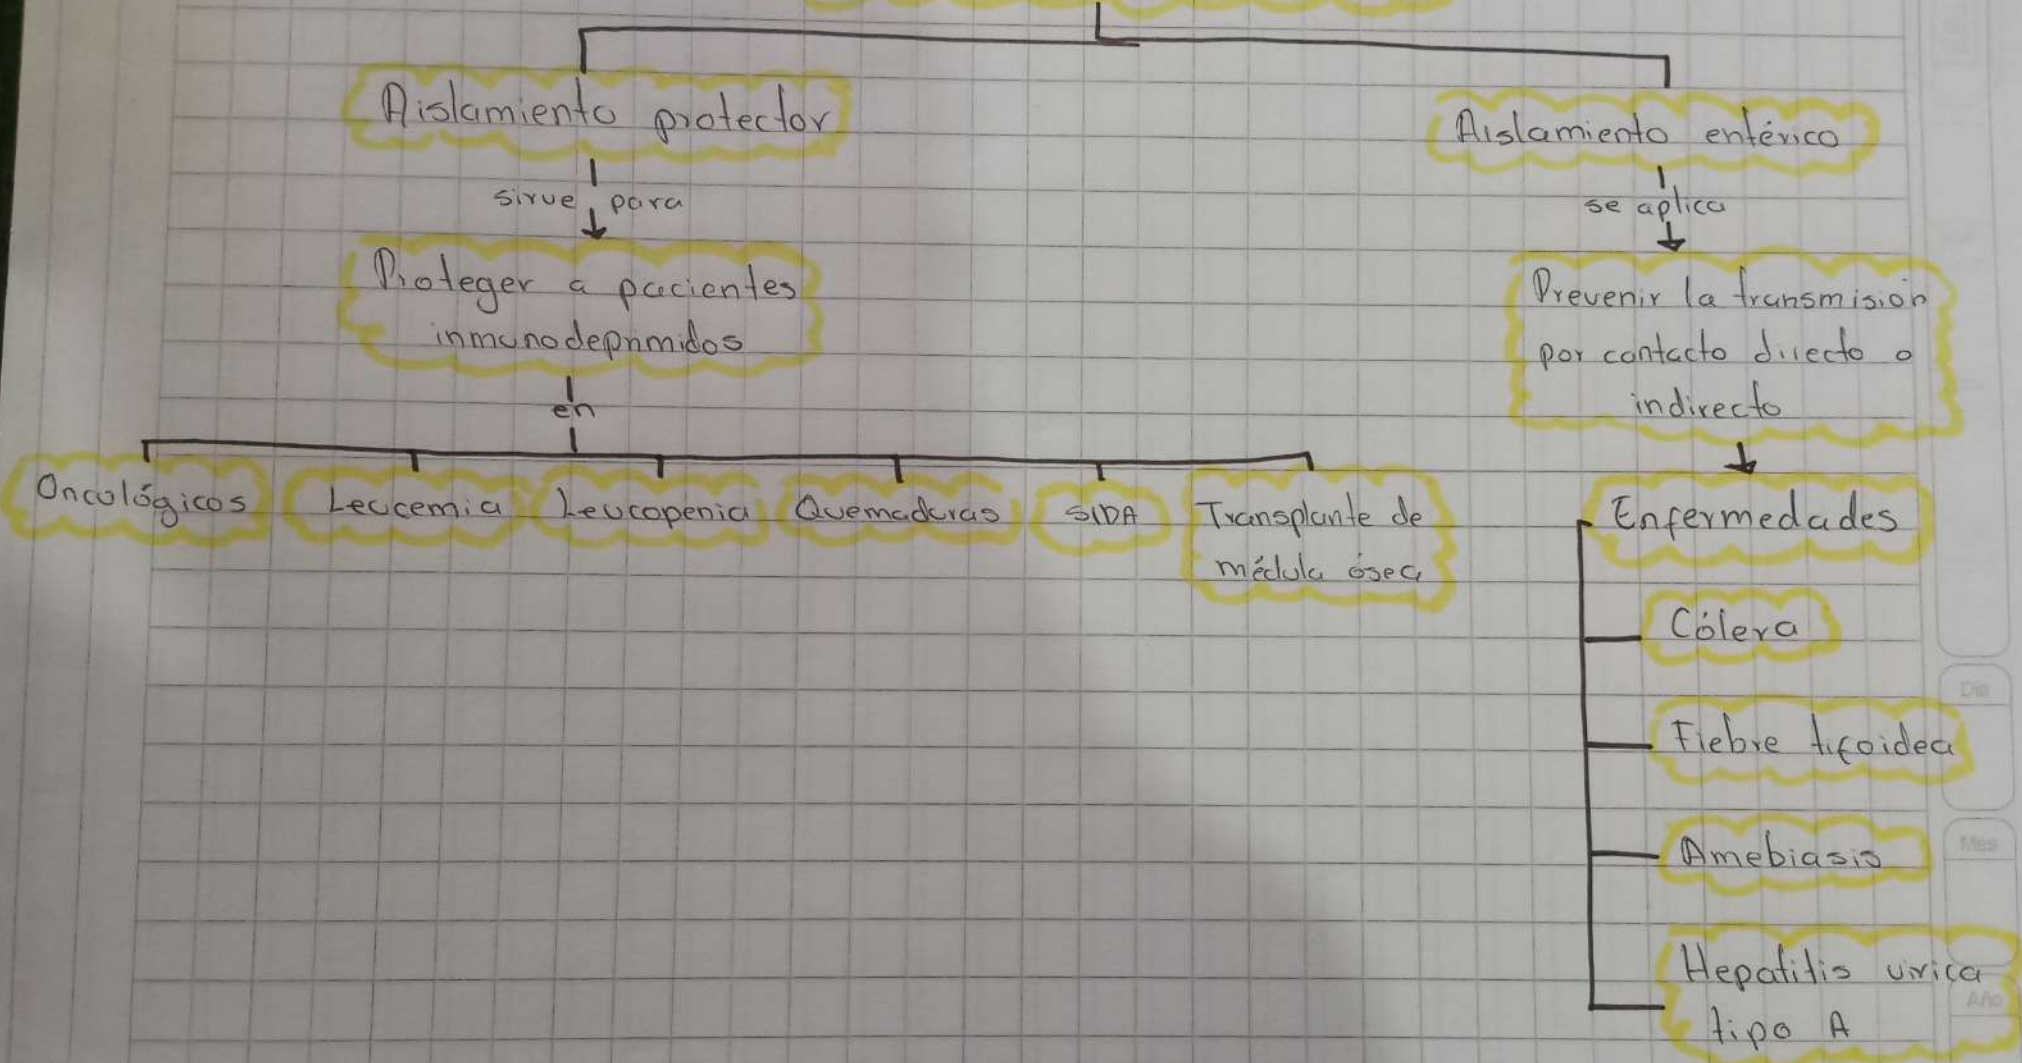 Aislamiento protector
sirve para
Proteger a pacientes
inmunodeprimidos
en
Oncológicos
Leucemia
Leucopenia
Quemaduras
SIDA
Transplante de
médula ósea
Aislamiento entérico
se aplica
Prevenir la transmisión
por contacto directo o
indirecto
Enfermedades
Cólera
Fiebre tifoidea
Amebiasis
Hepatitis vírica
tipo A
Día
Mes
Año